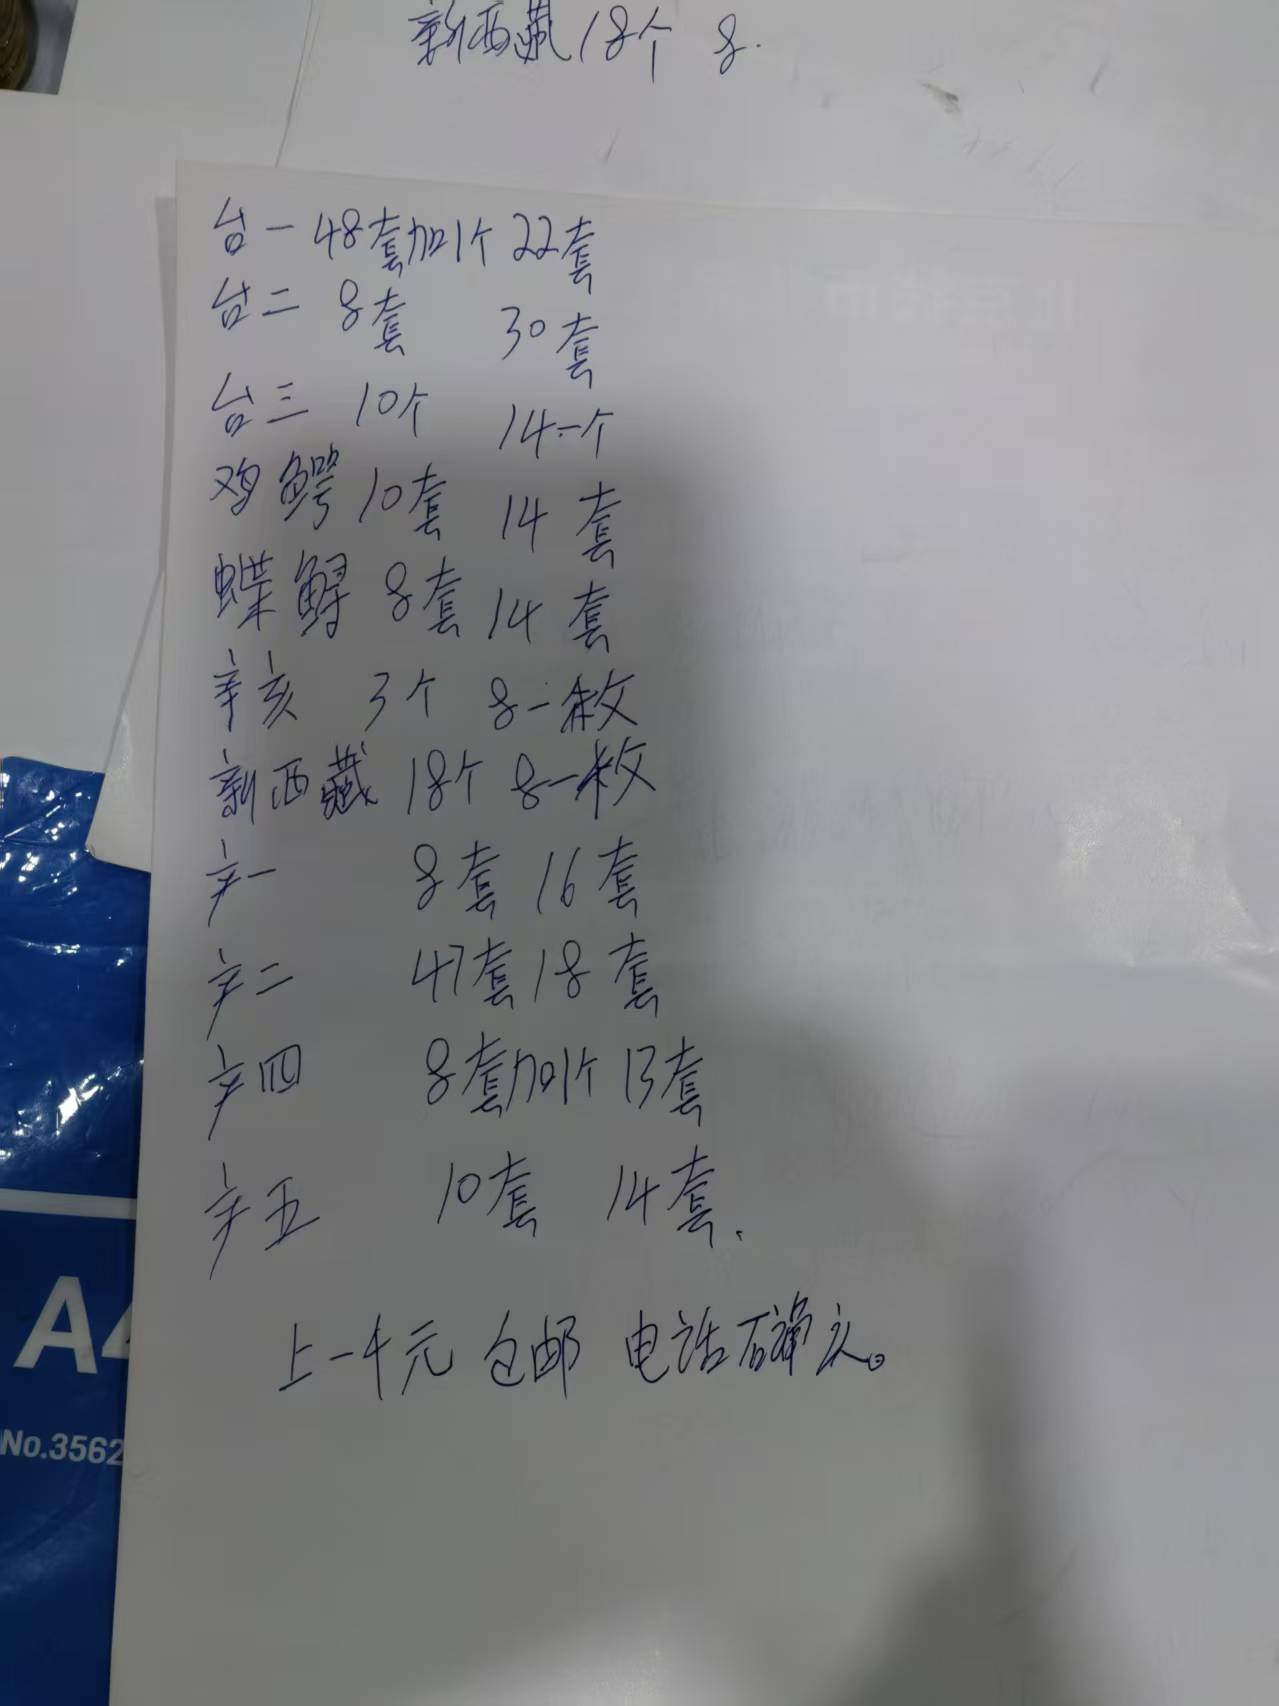 新西藏18个 8.
台一 48套加1个 22套
台二 8套 30套
台三 10个 14一个
鸡鳄 10套 14套
蝶鲟 8套 14套
辛亥 3个 8一枚
新西藏 18个 8一枚
辛一 8套 16套
辛二 47套 18套
辛四 8套加1个 13套
辛五 10套 14套.
上一千元 包邮 电话确认。
A4
No.3562